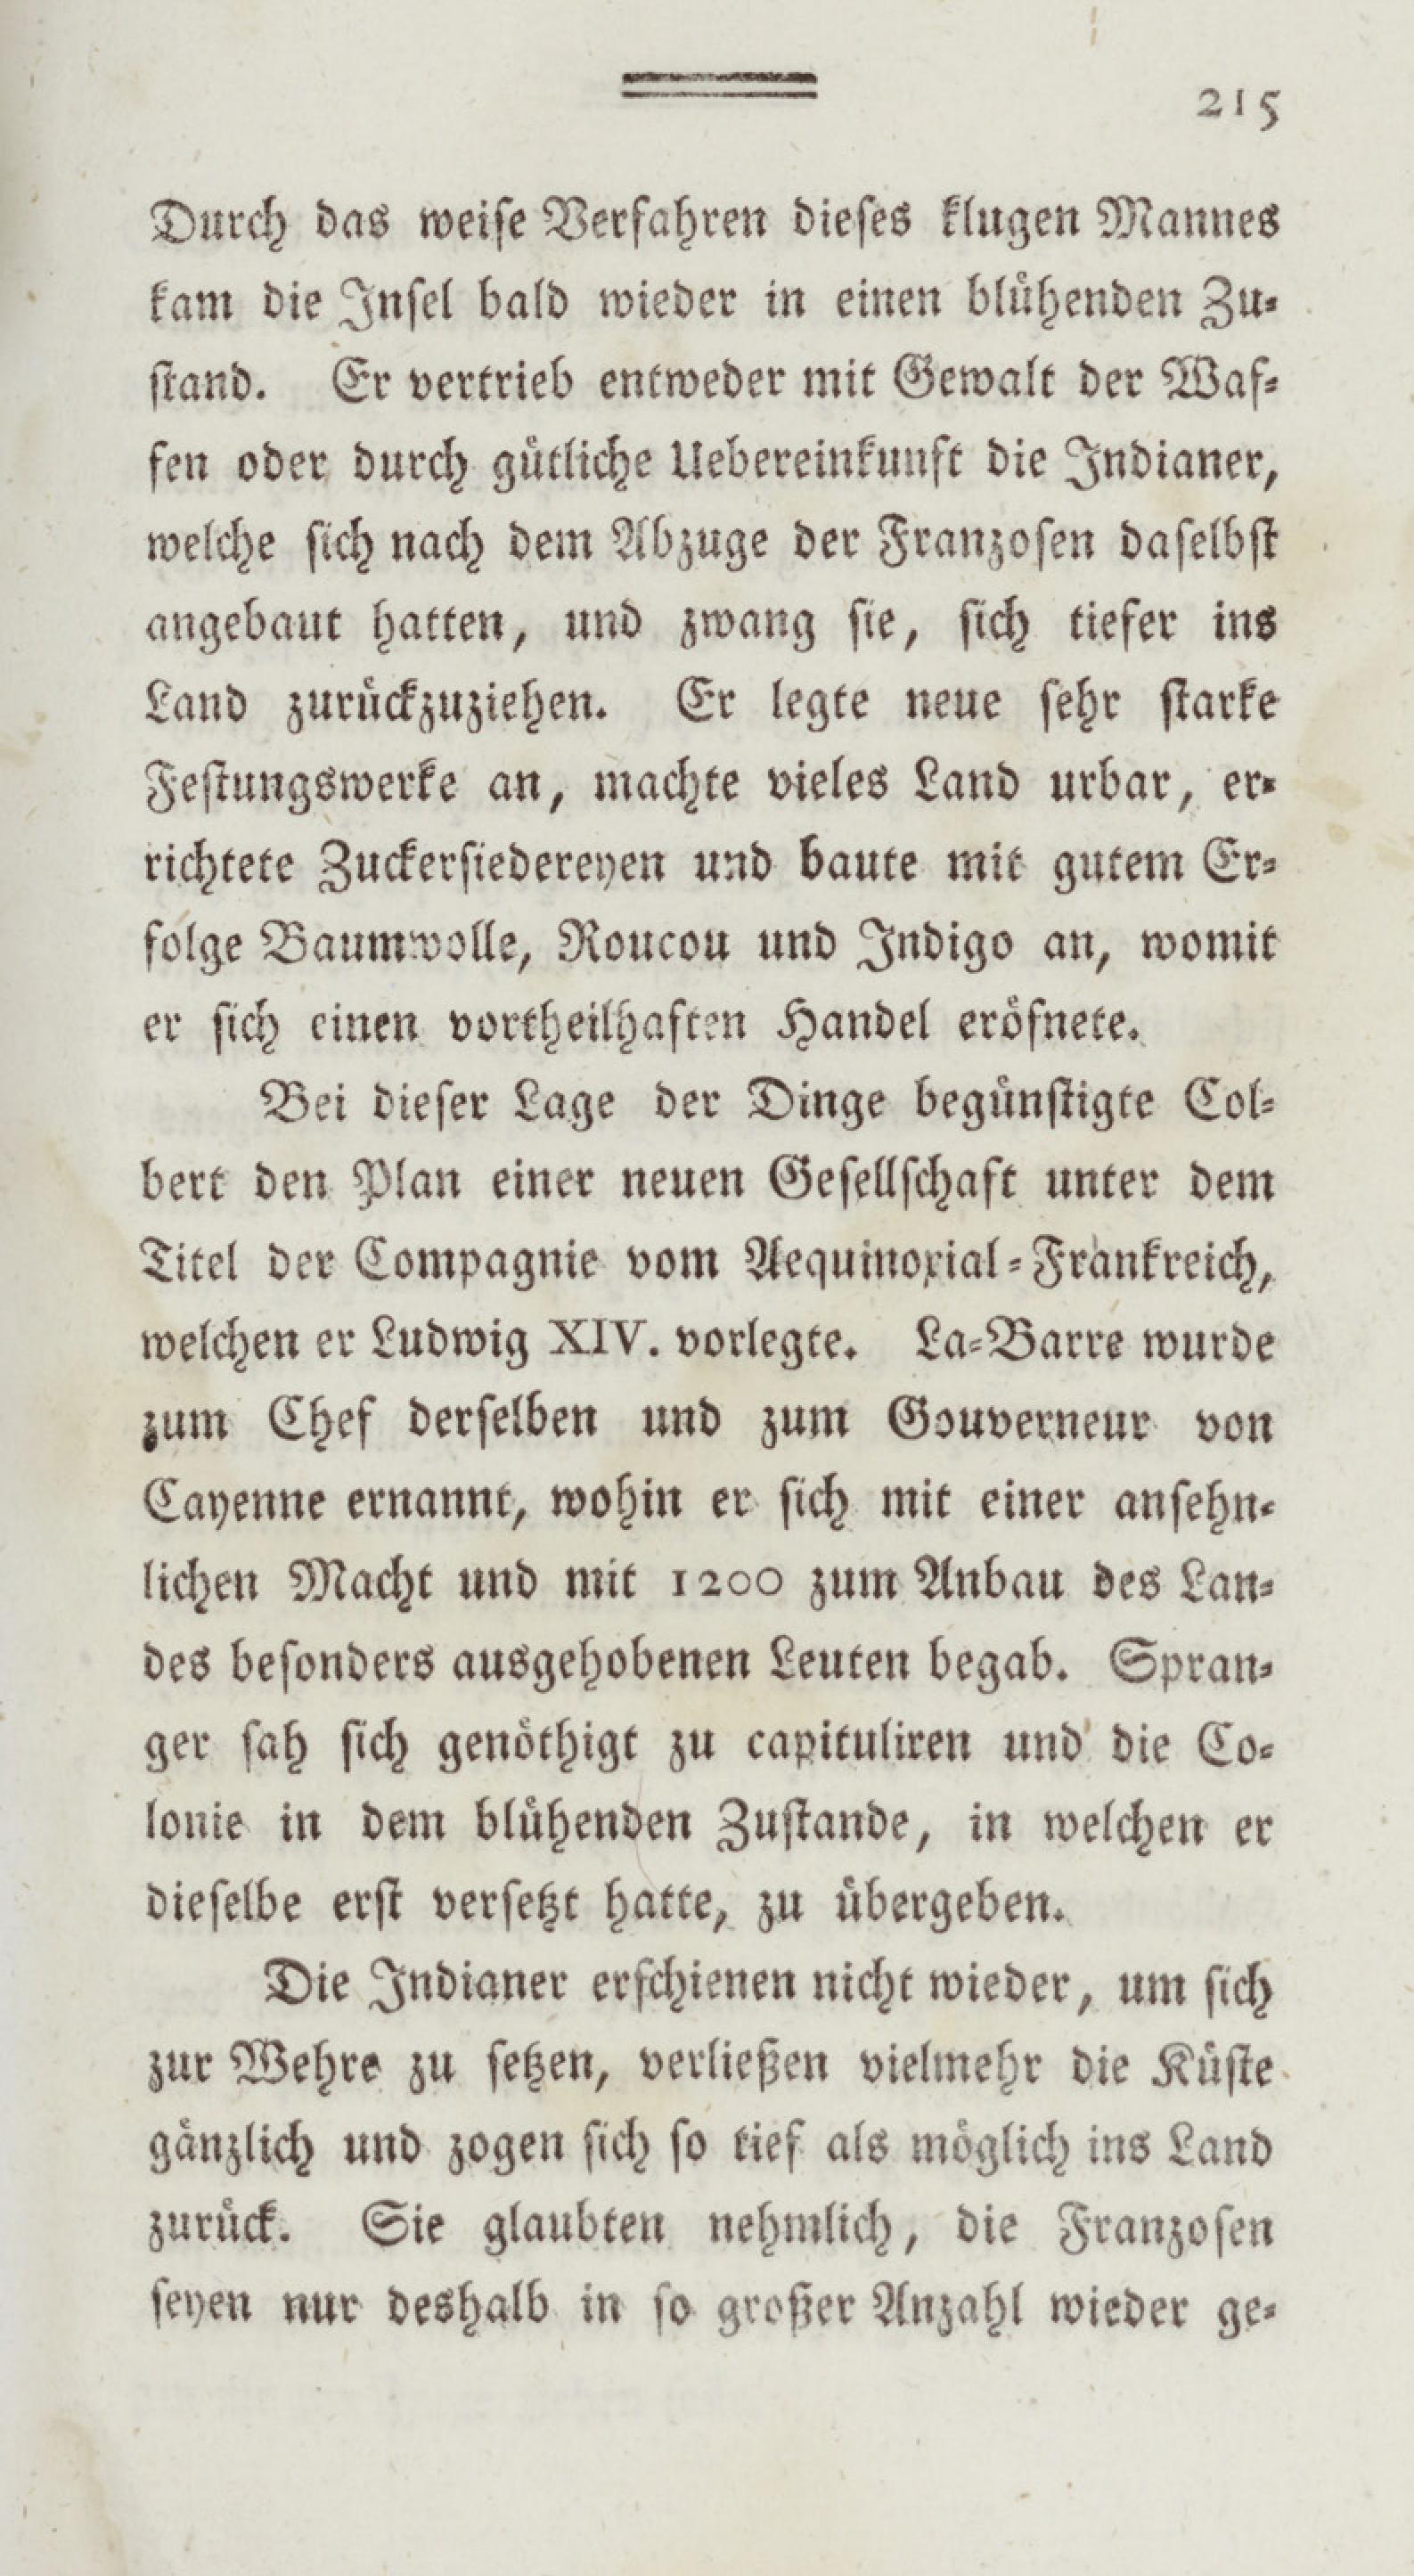 215
Durch das weise Verfahren dieses klugen Mannes
kam die Insel bald wieder in einen blühenden Zu-
stand. Er vertrieb entweder mit Gewalt der Waf-
fen oder durch gütliche Uebereinkunft die Indianer,
welche sich nach dem Abzuge der Franzosen daselbst
angebaut hatten, und zwang sie, sich tiefer ins
Land zurückzuziehen. Er legte neue sehr starke
Festungswerke an, machte vieles Land urbar, er-
richtete Zuckersiedereyen und baute mit gutem Er-
folge Baumwolle, Roucou und Indigo an, womit
er sich einen vortheilhaften Handel eröfnete.
Bei dieser Lage der Dinge begünstigte Col-
bert den Plan einer neuen Gesellschaft unter dem
Titel der Compagnie vom Aequinoxial-Frankreich,
welchen er Ludwig XIV. vorlegte. La-Barre wurde
zum Chef derselben und zum Gouverneur von
Cayenne ernannt, wohin er sich mit einer ansehn-
lichen Macht und mit 1200 zum Anbau des Lan-
des besonders ausgehobenen Leuten begab. Spran-
ger sah sich genöthigt zu capituliren und die Co-
lonie in dem blühenden Zustande, in welchen er
dieselbe erst versetzt hatte, zu übergeben.
Die Indianer erschienen nicht wieder, um sich
zur Wehre zu setzen, verließen vielmehr die Küste
gänzlich und zogen sich so tief als möglich ins Land
zurück. Sie glaubten nehmlich, die Franzosen
seyen nur deshalb in so großer Anzahl wieder ge-